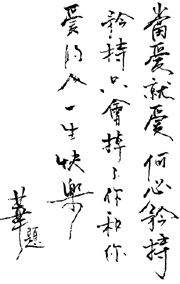 當愛就愛何必矜持
矜持只會掉了你和你
愛的人一生快樂
華題